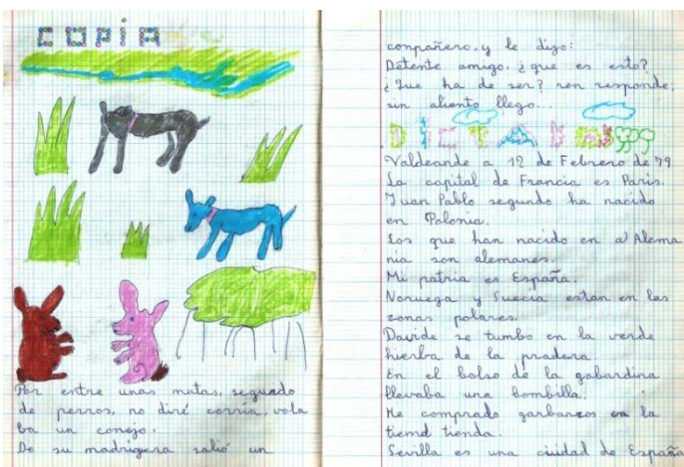 COPIA
Por entre unas matas, seguido
de perros, no diré corría, vola
ba un conejo.
De su madriguera salió un
conpañero, y le dijo:
Detente amigo, ¿que es esto?
¿Que ha de ser? ren responde;
sin aliento llego...
DICTADO
Valdeande a 12 de Febrero de 79
La capital de Francia es París.
Juan Pablo segundo ha nacido
en Polonia.
Los que han nacido en a Alema
nia son alemanes.
Mi patria es España.
Noruega y Suecia estan en las
zonas polares.
Davide se tumbo en la verde
hierba de la pradera.
En el bolso de la gabardina
llevaba una bombilla.
He comprado garbanzos en la
tiemd tienda.
Sevilla es una ciudad de España